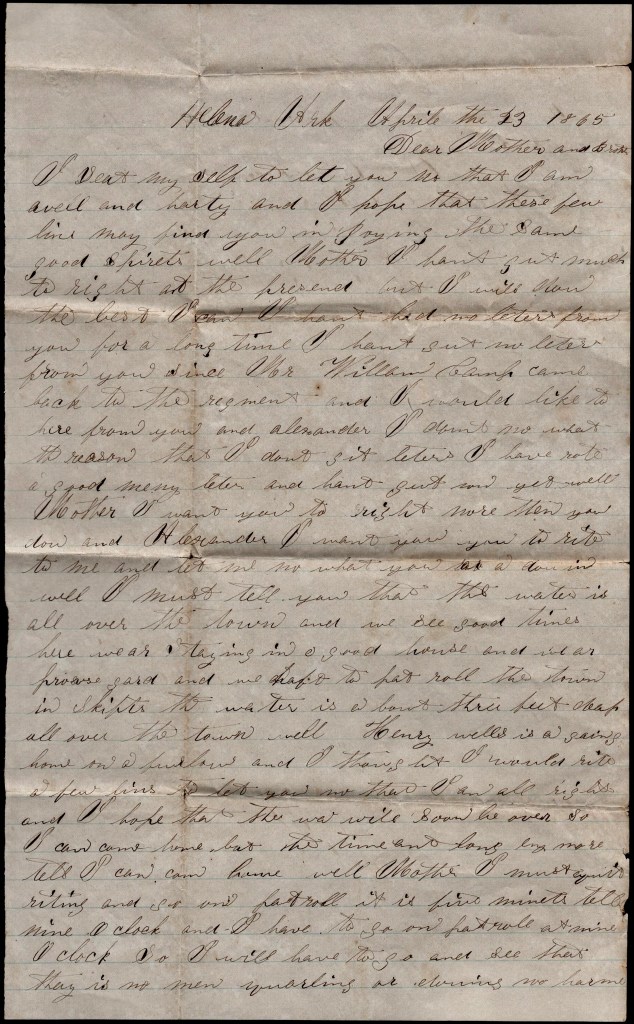 Helena Ark Aprile the 23 1865
Dear Mother and
I seat my self to let you no that I am
well and harty and I hope that these few
line may find you in Joying the same
good spirets well Mother I hant gut much
to right at the presend but I will dow
the best I can I hant had no leters from
you for a long time I hant gut no leter
from you since Mr William Camp came
back to the regment and I would like to
here from you and alexander I dont no what
th reason that I dont git leters I have rote
a good meny leter and hant gut non yet well
Mother I want you to right more then you
dow and Alexander I want you you to rite
to me and let me no what you a douin
well I must tell you that the water is
all over the town and we see good times
here wear staying in a good house and ar
provose gard and we haft to pat roll the town
in skifts th water is a bout three feet deap
all over the town well Henry wells is a going
home on a furlow and I thought I would rite
a few lins to let you no that I am all right
and I hope that the wa will soon be over so
I can come home but the time ant long eny more
tell I can com home well Mother I must quit
riting and go on patroll it is five minets tell
nine oclock and I have to go on patroll at nine
Oclock so I will have to go and see that
thay is no men quarling or douing no harme